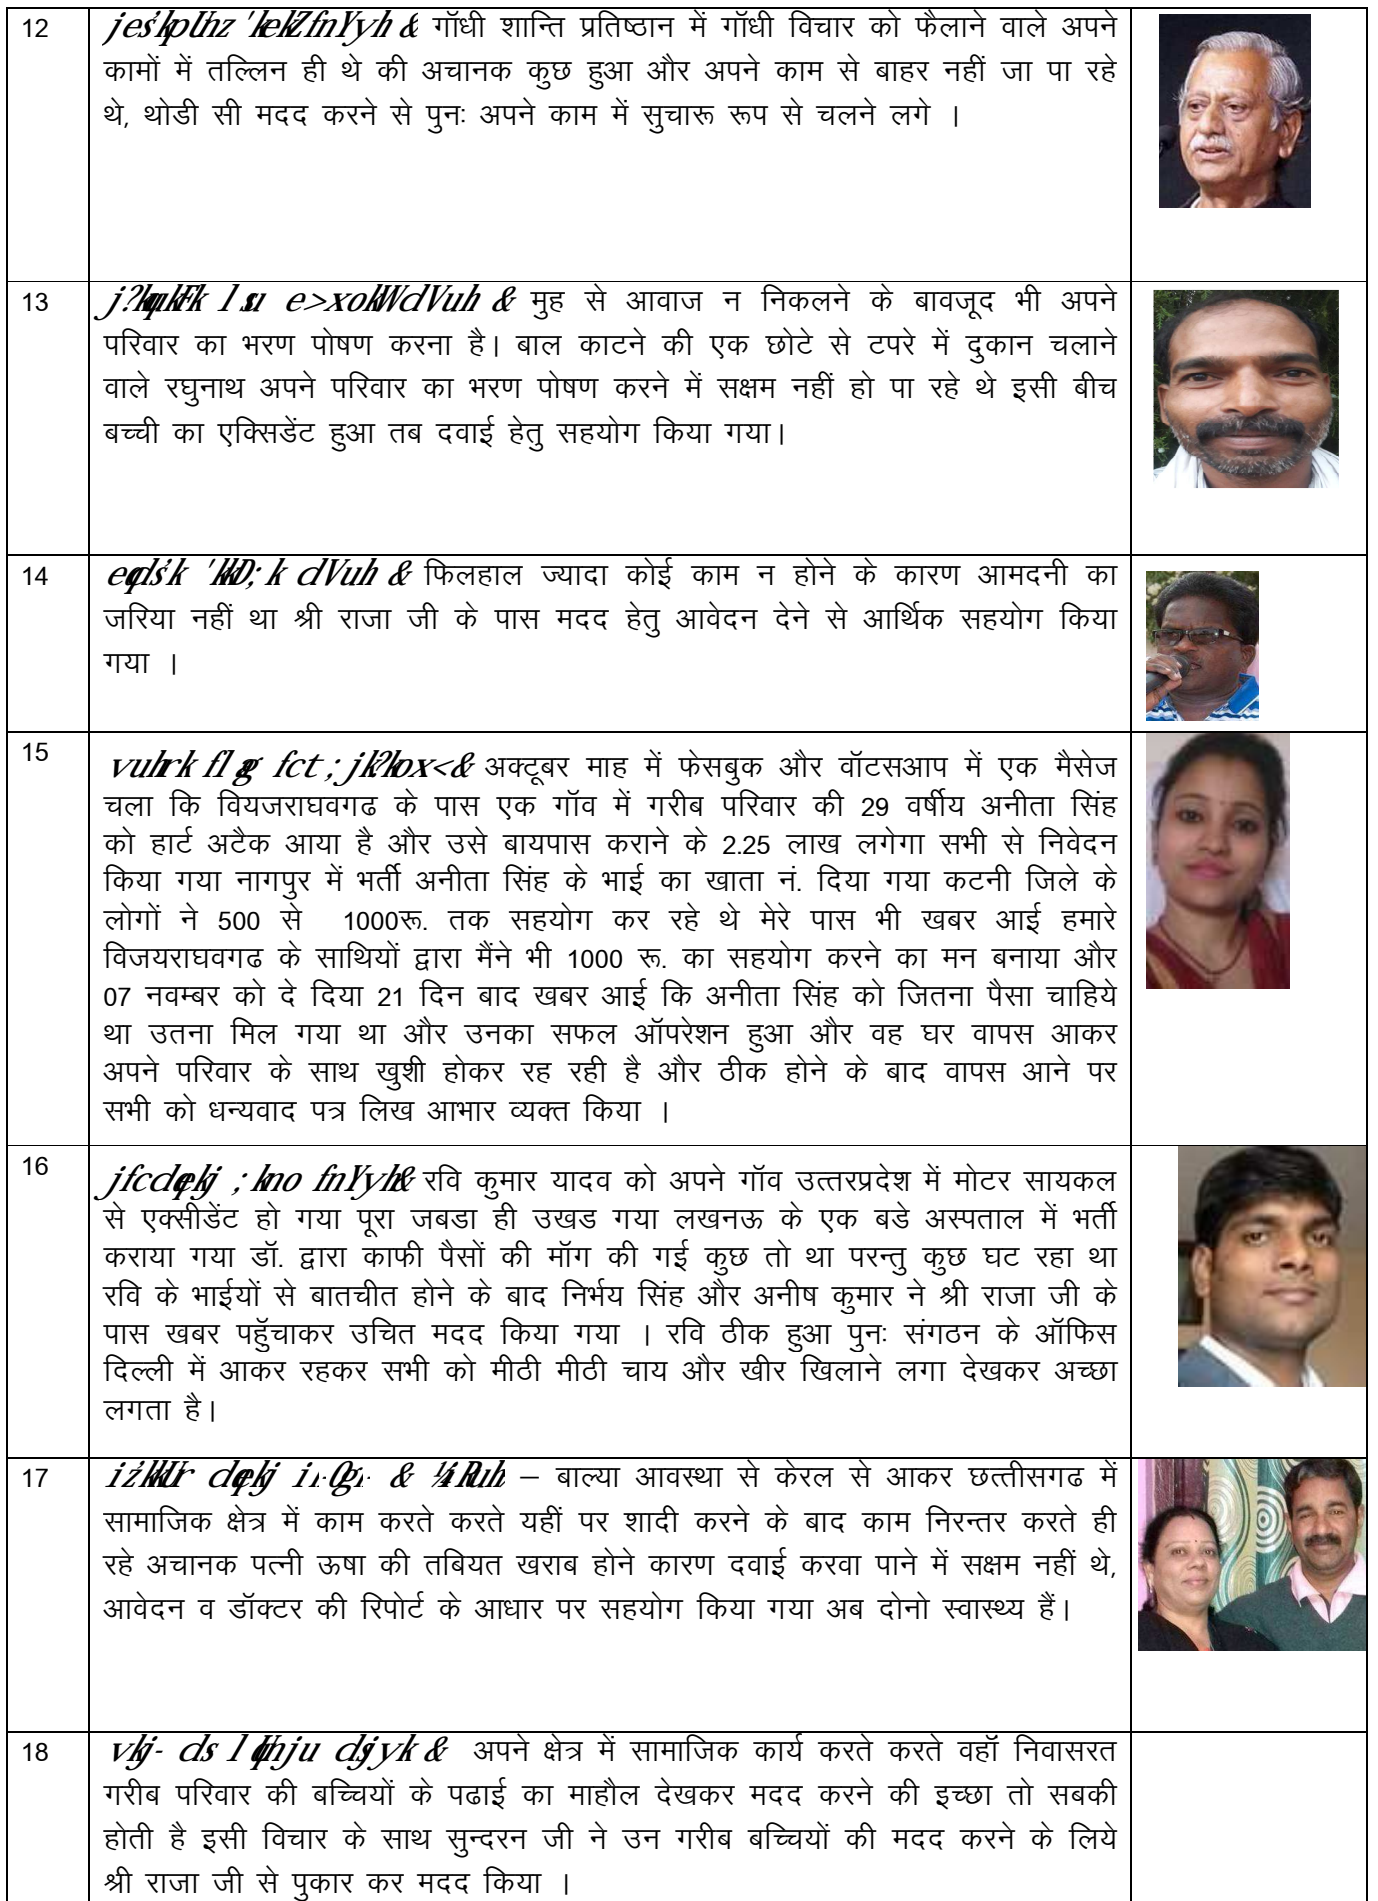 12
fnYyh & गॉधी शान्ति प्रतिष्ठान में गॉधी विचार को फैलाने वाले अपने
कामों में तल्लिन ही थे की अचानक कुछ हुआ और अपने काम से बाहर नहीं जा पा रहे
थे, थोडी सी मदद करने से पुनः अपने काम में सुचारू रूप से चलने लगे ।
13
& मुह से आवाज न निकलने के बावजूद भी अपने
परिवार का भरण पोषण करना है। बाल काटने की एक छोटे से टपरे में दुकान चलाने
वाले रघुनाथ अपने परिवार का भरण पोषण करने में सक्षम नहीं हो पा रहे थे इसी बीच
बच्ची का एक्सिडेंट हुआ तब दवाई हेतु सहयोग किया गया।
14
dVuh & फिलहाल ज्यादा कोई काम न होने के कारण आमदनी का
जरिया नहीं था श्री राजा जी के पास मदद हेतु आवेदन देने से आर्थिक सहयोग किया
गया ।
15
अक्टूबर माह में फेसबुक और वॉटसआप में एक मैसेज
चला कि वियजराघवगढ के पास एक गॉव में गरीब परिवार की 29 वर्षीय अनीता सिंह
को हार्ट अटैक आया है और उसे बायपास कराने के 2.25 लाख लगेगा सभी से निवेदन
किया गया नागपुर में भर्ती अनीता सिंह के भाई का खाता नं. दिया गया कटनी जिले के
लोगों ने 500 से 1000रू. तक सहयोग कर रहे थे मेरे पास भी खबर आई हमारे
विजयराघवगढ के साथियों द्वारा मैंने भी 1000 रू. का सहयोग करने का मन बनाया और
07 नवम्बर को दे दिया 21 दिन बाद खबर आई कि अनीता सिंह को जितना पैसा चाहिये
था उतना मिल गया था और उनका सफल ऑपरेशन हुआ और वह घर वापस आकर
अपने परिवार के साथ खुशी होकर रह रही है और ठीक होने के बाद वापस आने पर
सभी को धन्यवाद पत्र लिख आभार व्यक्त किया ।
16
रवि कुमार यादव को अपने गॉव उत्तरप्रदेश में मोटर सायकल
से एक्सीडेंट हो गया पूरा जबडा ही उखड गया लखनऊ के एक बडे अस्पताल में भर्ती
कराया गया डॉ. द्वारा काफी पैसों की मॉग की गई कुछ तो था परन्तु कुछ घट रहा था
रवि के भाईयों से बातचीत होने के बाद निर्भय सिंह और अनीष कुमार ने श्री राजा जी के
पास खबर पहुॅचाकर उचित मदद किया गया । रवि ठीक हुआ पुनः संगठन के ऑफिस
दिल्ली में आकर रहकर सभी को मीठी मीठी चाय और खीर खिलाने लगा देखकर अच्छा
लगता है।
17
– बाल्या आवस्था से केरल से आकर छत्तीसगढ में
सामाजिक क्षेत्र में काम करते करते यहीं पर शादी करने के बाद काम निरन्तर करते ही
रहे अचानक पत्नी ऊषा की तबियत खराब होने कारण दवाई करवा पाने में सक्षम नहीं थे,
आवेदन व डॉक्टर की रिपोर्ट के आधार पर सहयोग किया गया अब दोनो स्वास्थ्य हैं।
18
& अपने क्षेत्र में सामाजिक कार्य करते करते वहॉ निवासरत
गरीब परिवार की बच्चियों के पढाई का माहौल देखकर मदद करने की इच्छा तो सबकी
होती है इसी विचार के साथ सुन्दरन जी ने उन गरीब बच्चियों की मदद करने के लिये
श्री राजा जी से पुकार कर मदद किया ।